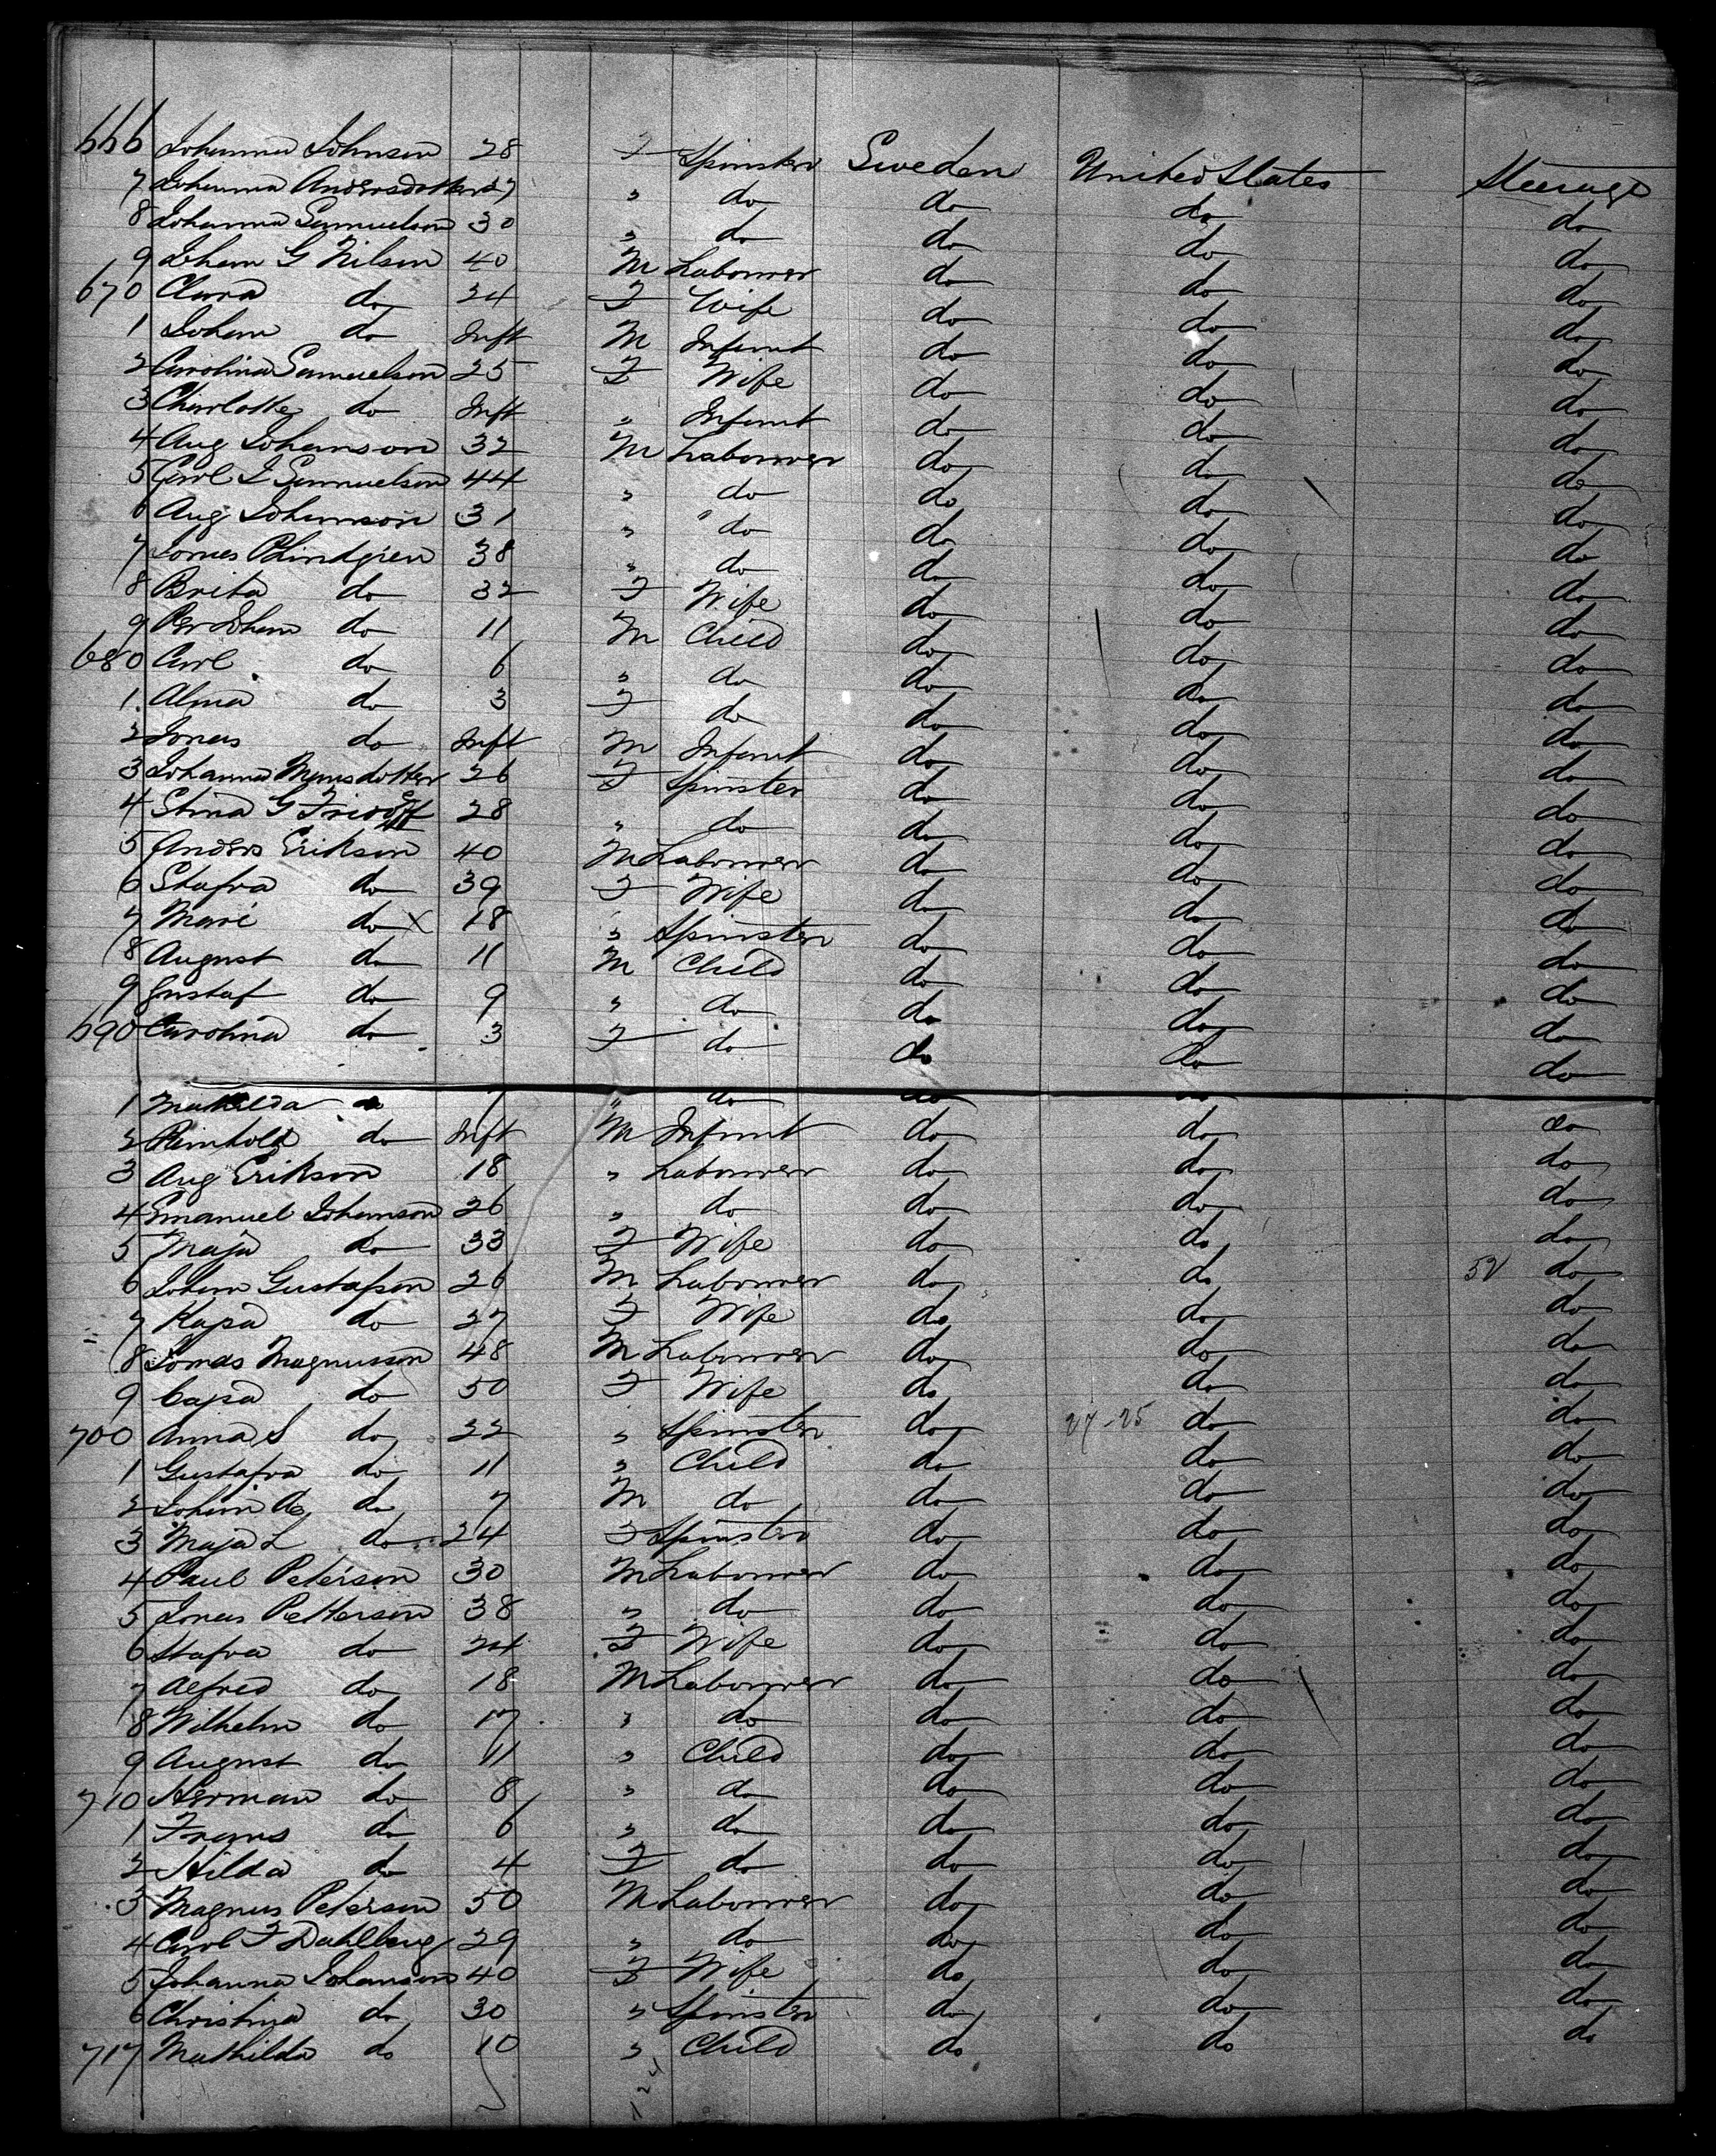 666 Johanna Johnson 28 F Spinster Sweden United States Steerage
7 Johanna Andersdotter 27 " do do do do
8 Johanna Samuelson 30 " do do do do
9 Johan G Nilson 40 M Labourer do do do
670 Clara do 24 F Wife do do do
1 Johan do Inft M Infant do do do
2 Carolina Samuelson 25 F Wife do do do
3 Charlotte do Inft " Infant do do do
4 Aug Johanson 32 M Labourer do do do
5 Carl J Samuelson 44 " do do do do
6 Aug Johanson 31 " do do do do
7 Jonas P Lindgren 38 " do do do do
8 Brita do 32 F Wife do do do
9 Per Johan do 11 M Child do do do
680 Carl do 6 " do do do do
1 Alma do 3 F do do do do
2 Jonas do Inft M Infant do do do
3 Johanna Monsdotter 26 F Spinster do do do
4 Stina G 28 " do do do do
5 Anders Erikson 40 M Labourer do do do
6 Stafva do 39 F Wife do do do
7 Mari do x 18 " Spinster do do do
8 August do 11 M Child do do do
9 Gustaf do 9 " do do do do
690 Carolina do 3 F do do do do
1 Mathilda do 7 " do do do do
2 Reinhold do Inft M Infant do do do
3 Aug Erikson 18 " Labourer do do do
4 Emanuel Johanson 26 " do do do do
5 Maja do 33 F Wife do do do
6 Johan Gustafson 26 M Labourer do do 52 do
7 Kajsa do 27 F Wife do do do
8 Jonas Magnusson 48 M Labourer do do do
9 Cajsa do 50 F Wife do do do
700 Anna S do 22 " Spinster do 27-25 do do
1 Gustafva do 11 " Child do do do
2 Johan A do 7 M do do do do
3 Maja L do 24 F Spinster do do do
4 Paul Peterson 30 M Labourer do do do
5 Jonas Petterson 38 " do do do do
6 Stafva do 24 F Wife do do do
7 Alfred do 18 M Labourer do do do
8 Wilhelm do 17 " do do do do
9 August do 11 " Child do do do
710 Herman do 8 " do do do do
1 Frans do 6 " do do do do
2 Hilda do 4 F do do do do
3 Magnus Peterson 50 M Labourer do do do
4 Carl F Dahlberg 29 " do do do do
5 Johanna Johanson 40 F Wife do do do
6 Christina do 30 " Spinster do do do
717 Mathilda do 10 " Child do do do